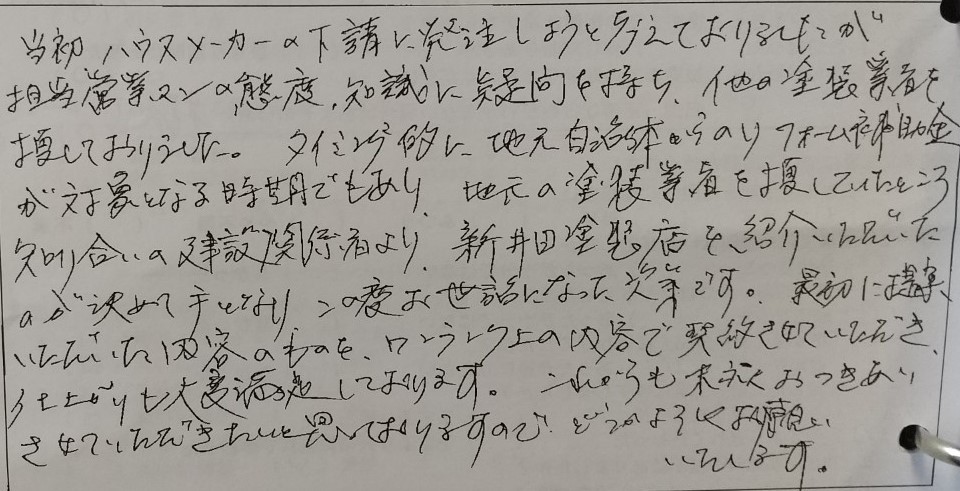 当初 ハウスメーカーの下請に発注しようと考えておりましたが
担当営業マンの態度、知識に疑問を持ち、他の塗装業者を
捜しておりました。タイミング的に地元自治体のリフォーム補助金
が対象となる時期でもあり、地元の塗装業者を捜していたところ
知り合いの建設関係者より、新井田塗装店を紹介いただいた
のが決めて手となり この度お世話になった次第です。最初に提案
いただいた内容のものを、ワンランク上の内容で契約させていただき、
仕上がりも大変満足しております。これからも末永くおつきあい
させていただきたいと思っておりますので、どうかよろしくお願い
いたします。